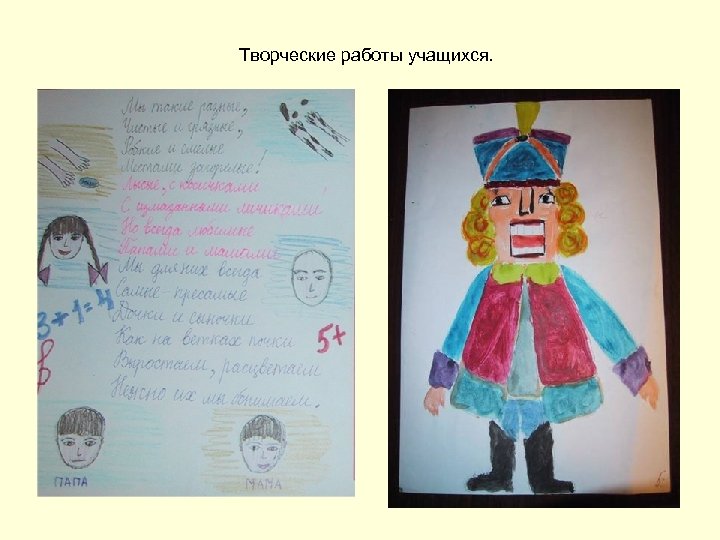 Творческие работы учащихся.
Мы такие разные,
Чистые и грязные,
Робкие и смелые
Местами загорелые!
Лысые, с косичками
С измазанными личиками!
Но всегда любимые
Папами и мамами
Мы для них всегда
Самые-пресамые
Дочки и сыночки
Как на ветках почки
Вырастаем, расцветаем
Нежно их мы обнимаем.
3+1=4
5+
ПАПА
МАМА